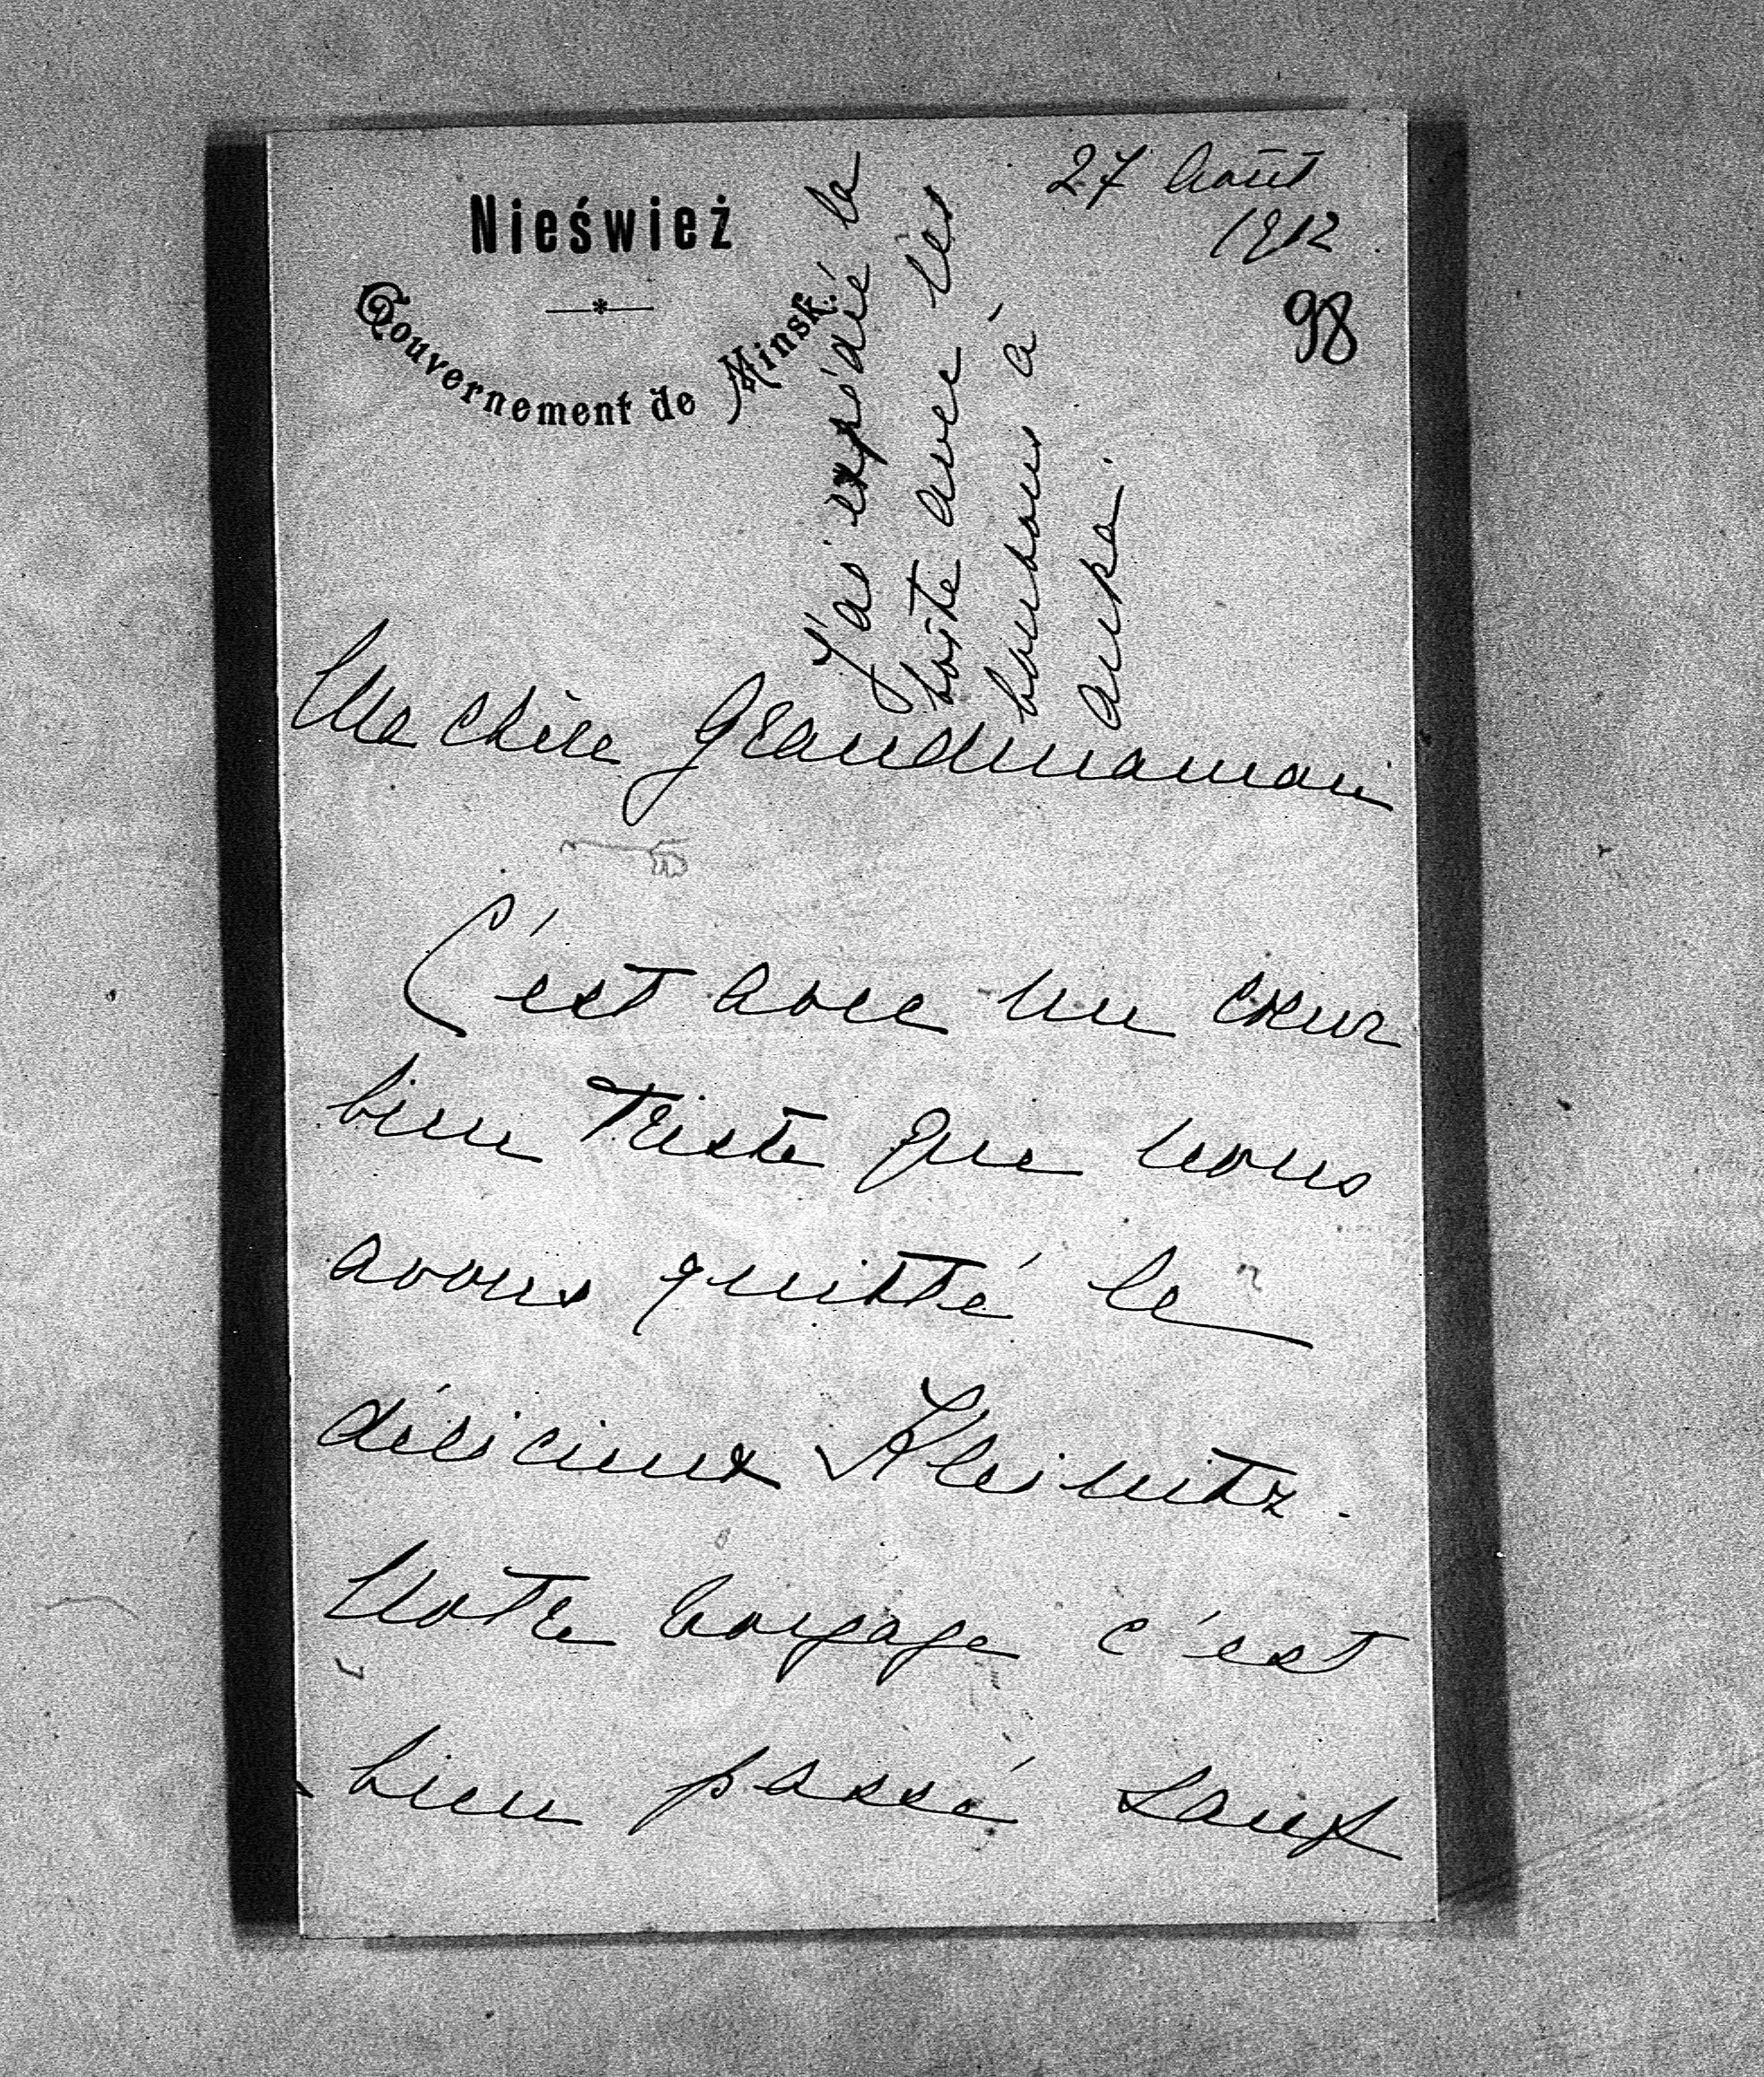 Nieśwież
Gouvernement de Minsk.
27 Août
1912
98
J'ai expédié la
boîte avec les
bonbons à
Anka.
Ma chère Grandmaman
C'est avec un cœur
bien triste que nous
avons quitté le
délicieux Kleinitz.
Notre voyage c'est
bien passé sauf